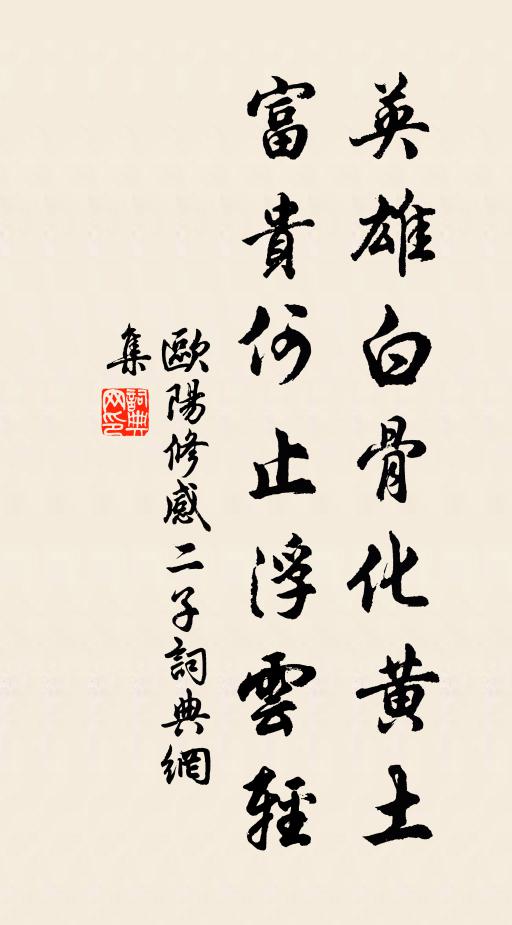 英雄白骨化黃土
富貴何止浮雲輕
歐陽修感二子詞典網
集
詞典
网印